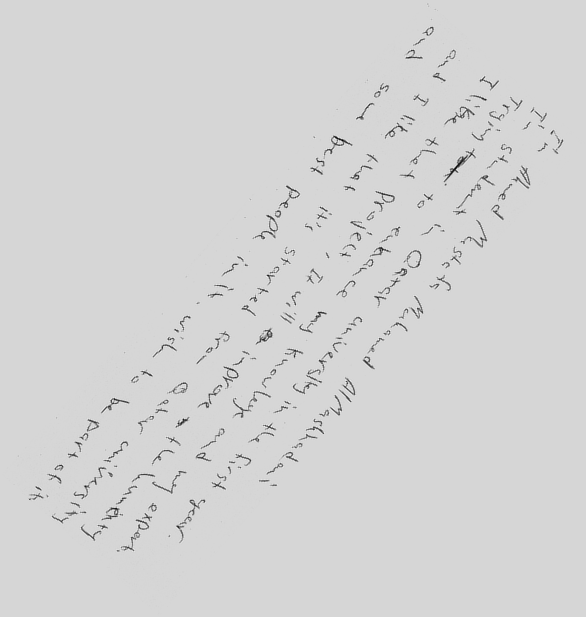 I'm Ahmed Mostafa Mohamed Al Mashhadani
I'm student in Qatar university in the first year.
Trying to enhance my knowlege and my expert.
I like that project, It will improve the
and I like that it's started from Qatar university
and some best people in it. wish to be part of it.